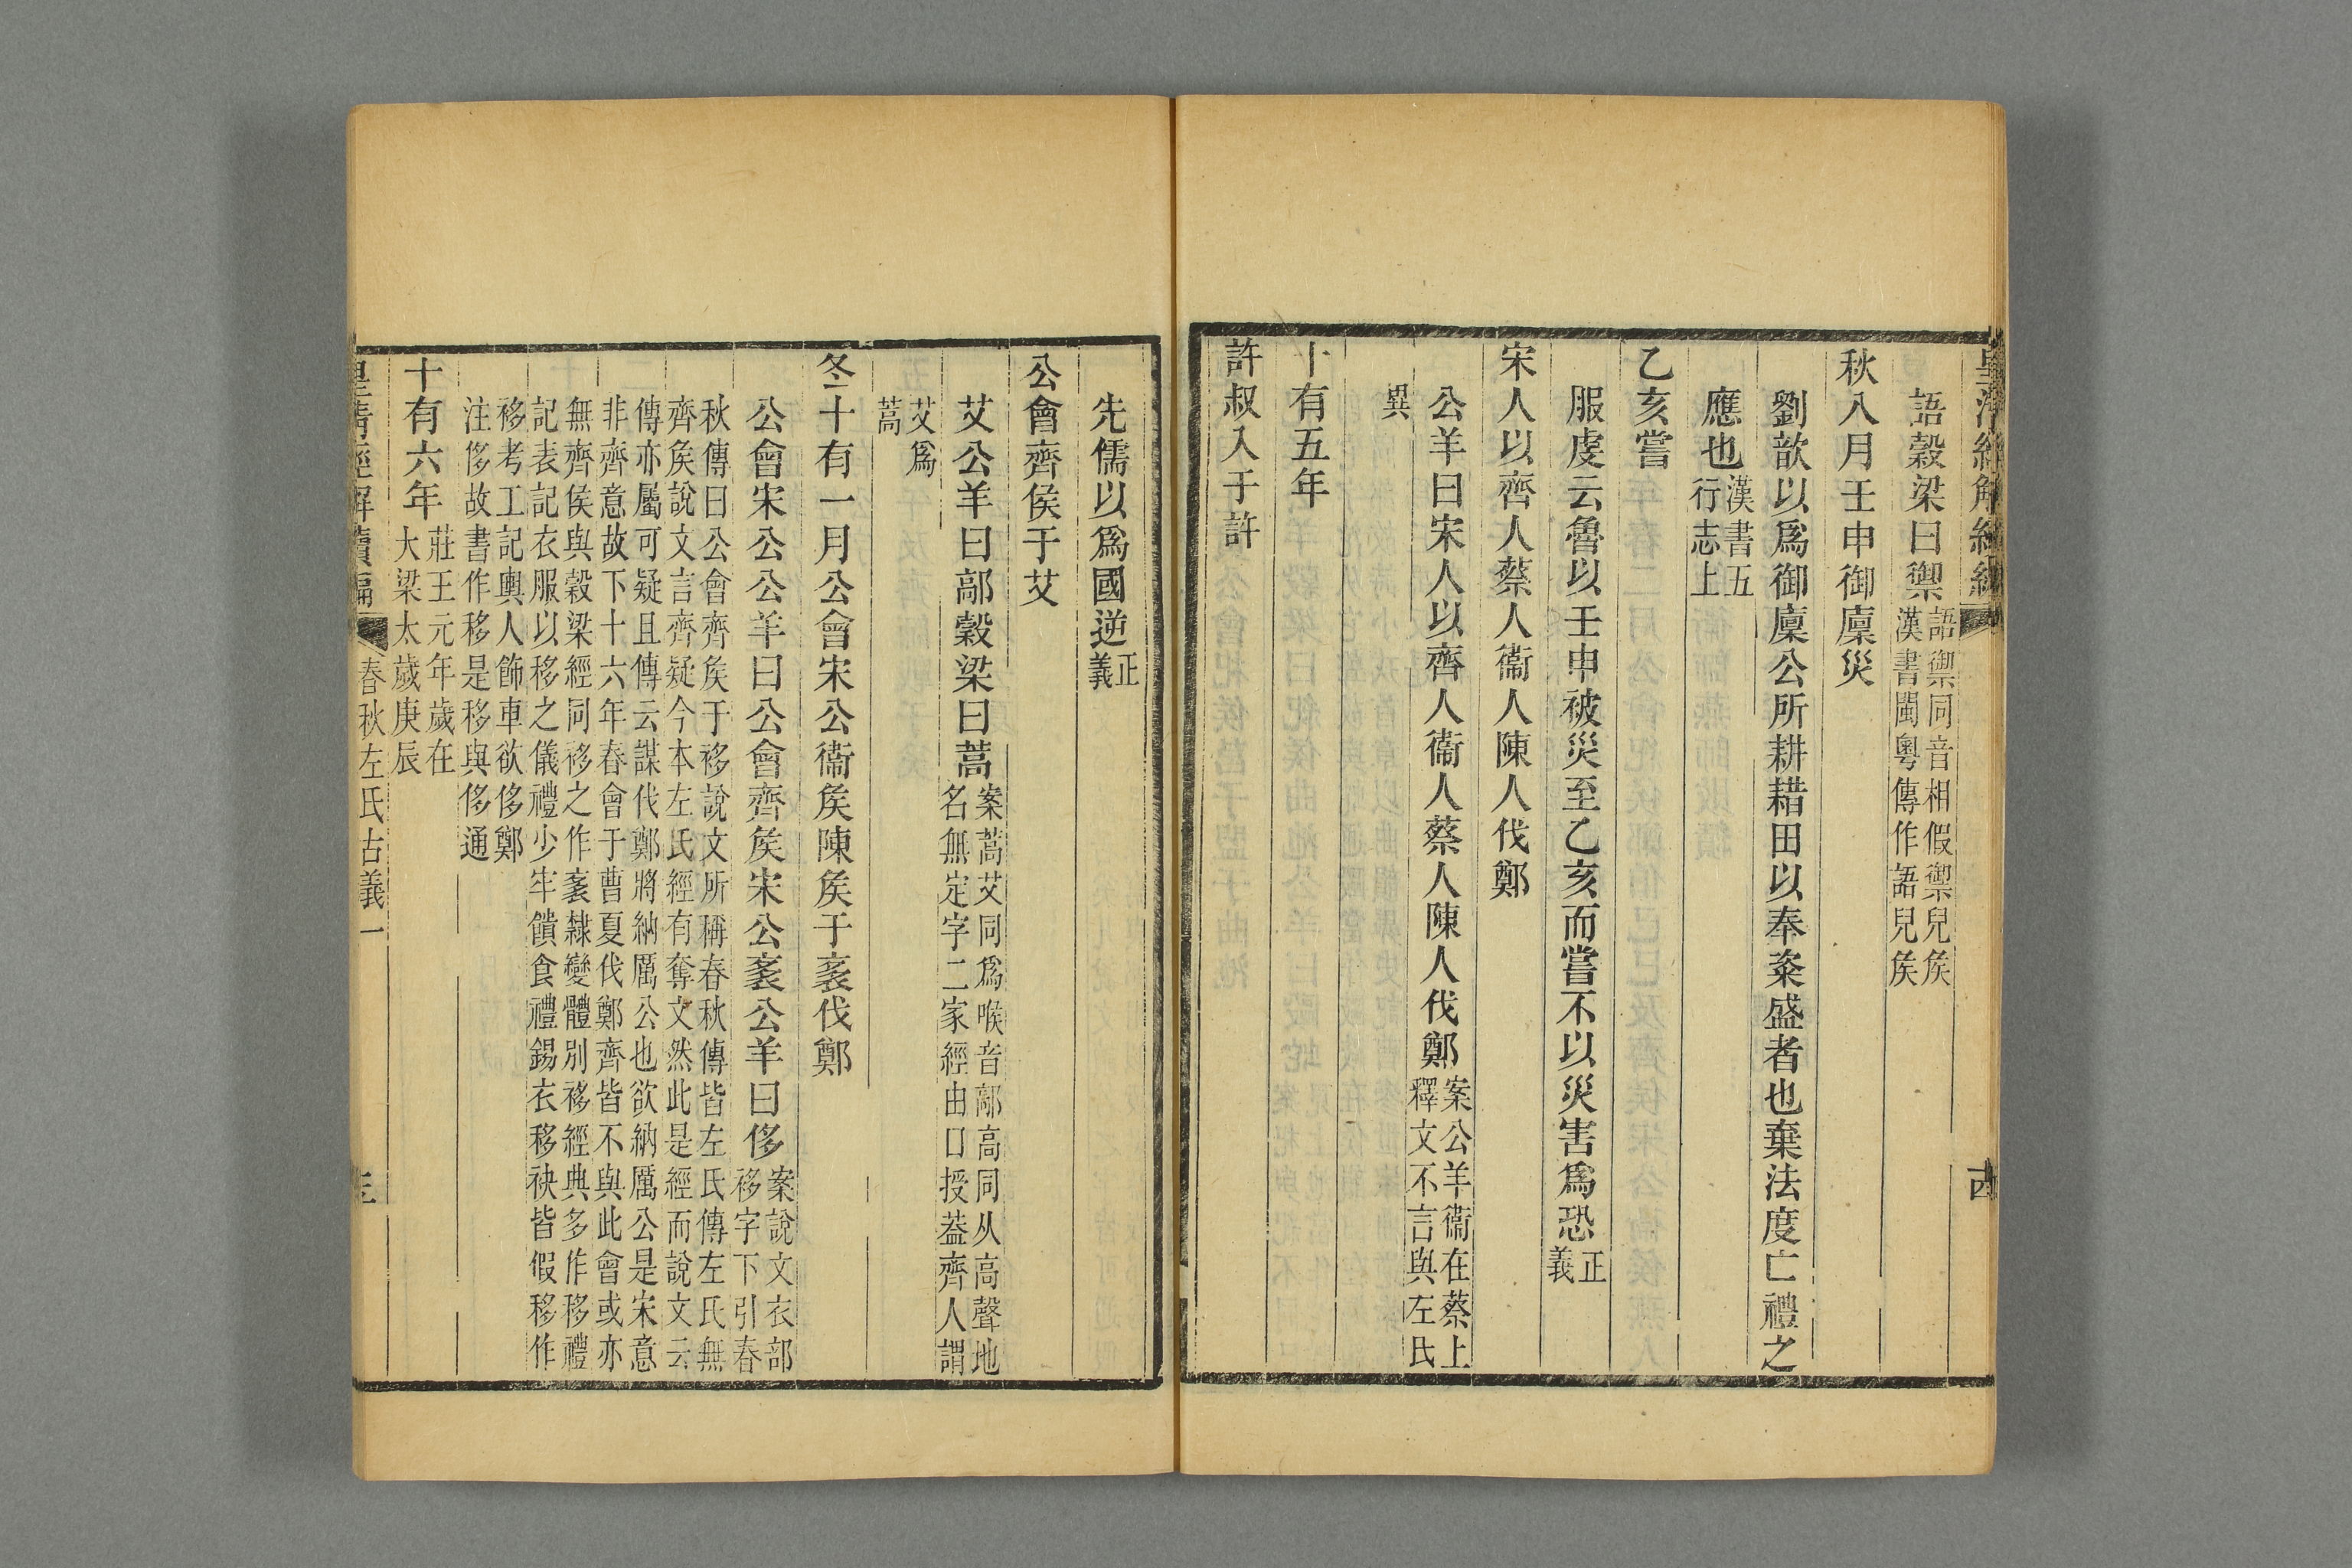 皇清經解續編
十四
語穀梁曰禦語禦同音相假禦兒矦
漢書閩粵傳作語兒矦
秋八月壬申御廩災
劉歆以爲御廩公所耕耤田以奉粢盛者也棄法度亡禮之
應也漢書五
行志上
乙亥嘗
服虔云魯以壬申被災至乙亥而嘗不以災害爲恐正
義
宋人以齊人蔡人衞人陳人伐鄭
公羊曰宋人以齊人衞人蔡人陳人伐鄭案公羊衞在蔡上
釋文不言與左氏
異
十有五年
許叔入于許
先儒以爲國逆正
義
公會齊侯于艾
艾公羊曰鄗穀梁曰蒿案蒿艾同爲喉音鄗高同从高聲地
名無定字二家經由口授葢齊人謂
艾爲
蒿
冬十有一月公會宋公衞矦陳矦于袲伐鄭
公會宋公公羊曰公會齊矦宋公袲公羊曰侈案說文衣部
移字下引春
秋傳曰公會齊矦于袳說文所稱春秋傳皆左氏傳左氏無
齊矦說文言齊疑今本左氏經有奪文然此是經而說文云
傳亦屬可疑且傳云謀伐鄭將納厲公也欲納厲公是宋意
非齊意故下十六年春會于曹夏伐鄭齊皆不與此會或亦
無齊侯與穀梁經同袳之作袲隸變體別袳經典多作移禮
記表記衣服以移之儀禮少牢饋食禮錫衣移袂皆假移作
袳考工記輿人飾車欲侈鄭
注侈故書作移是移與侈通
十有六年莊王元年歲在
大梁太歲庚辰
皇清經解續編
春秋左氏古義一